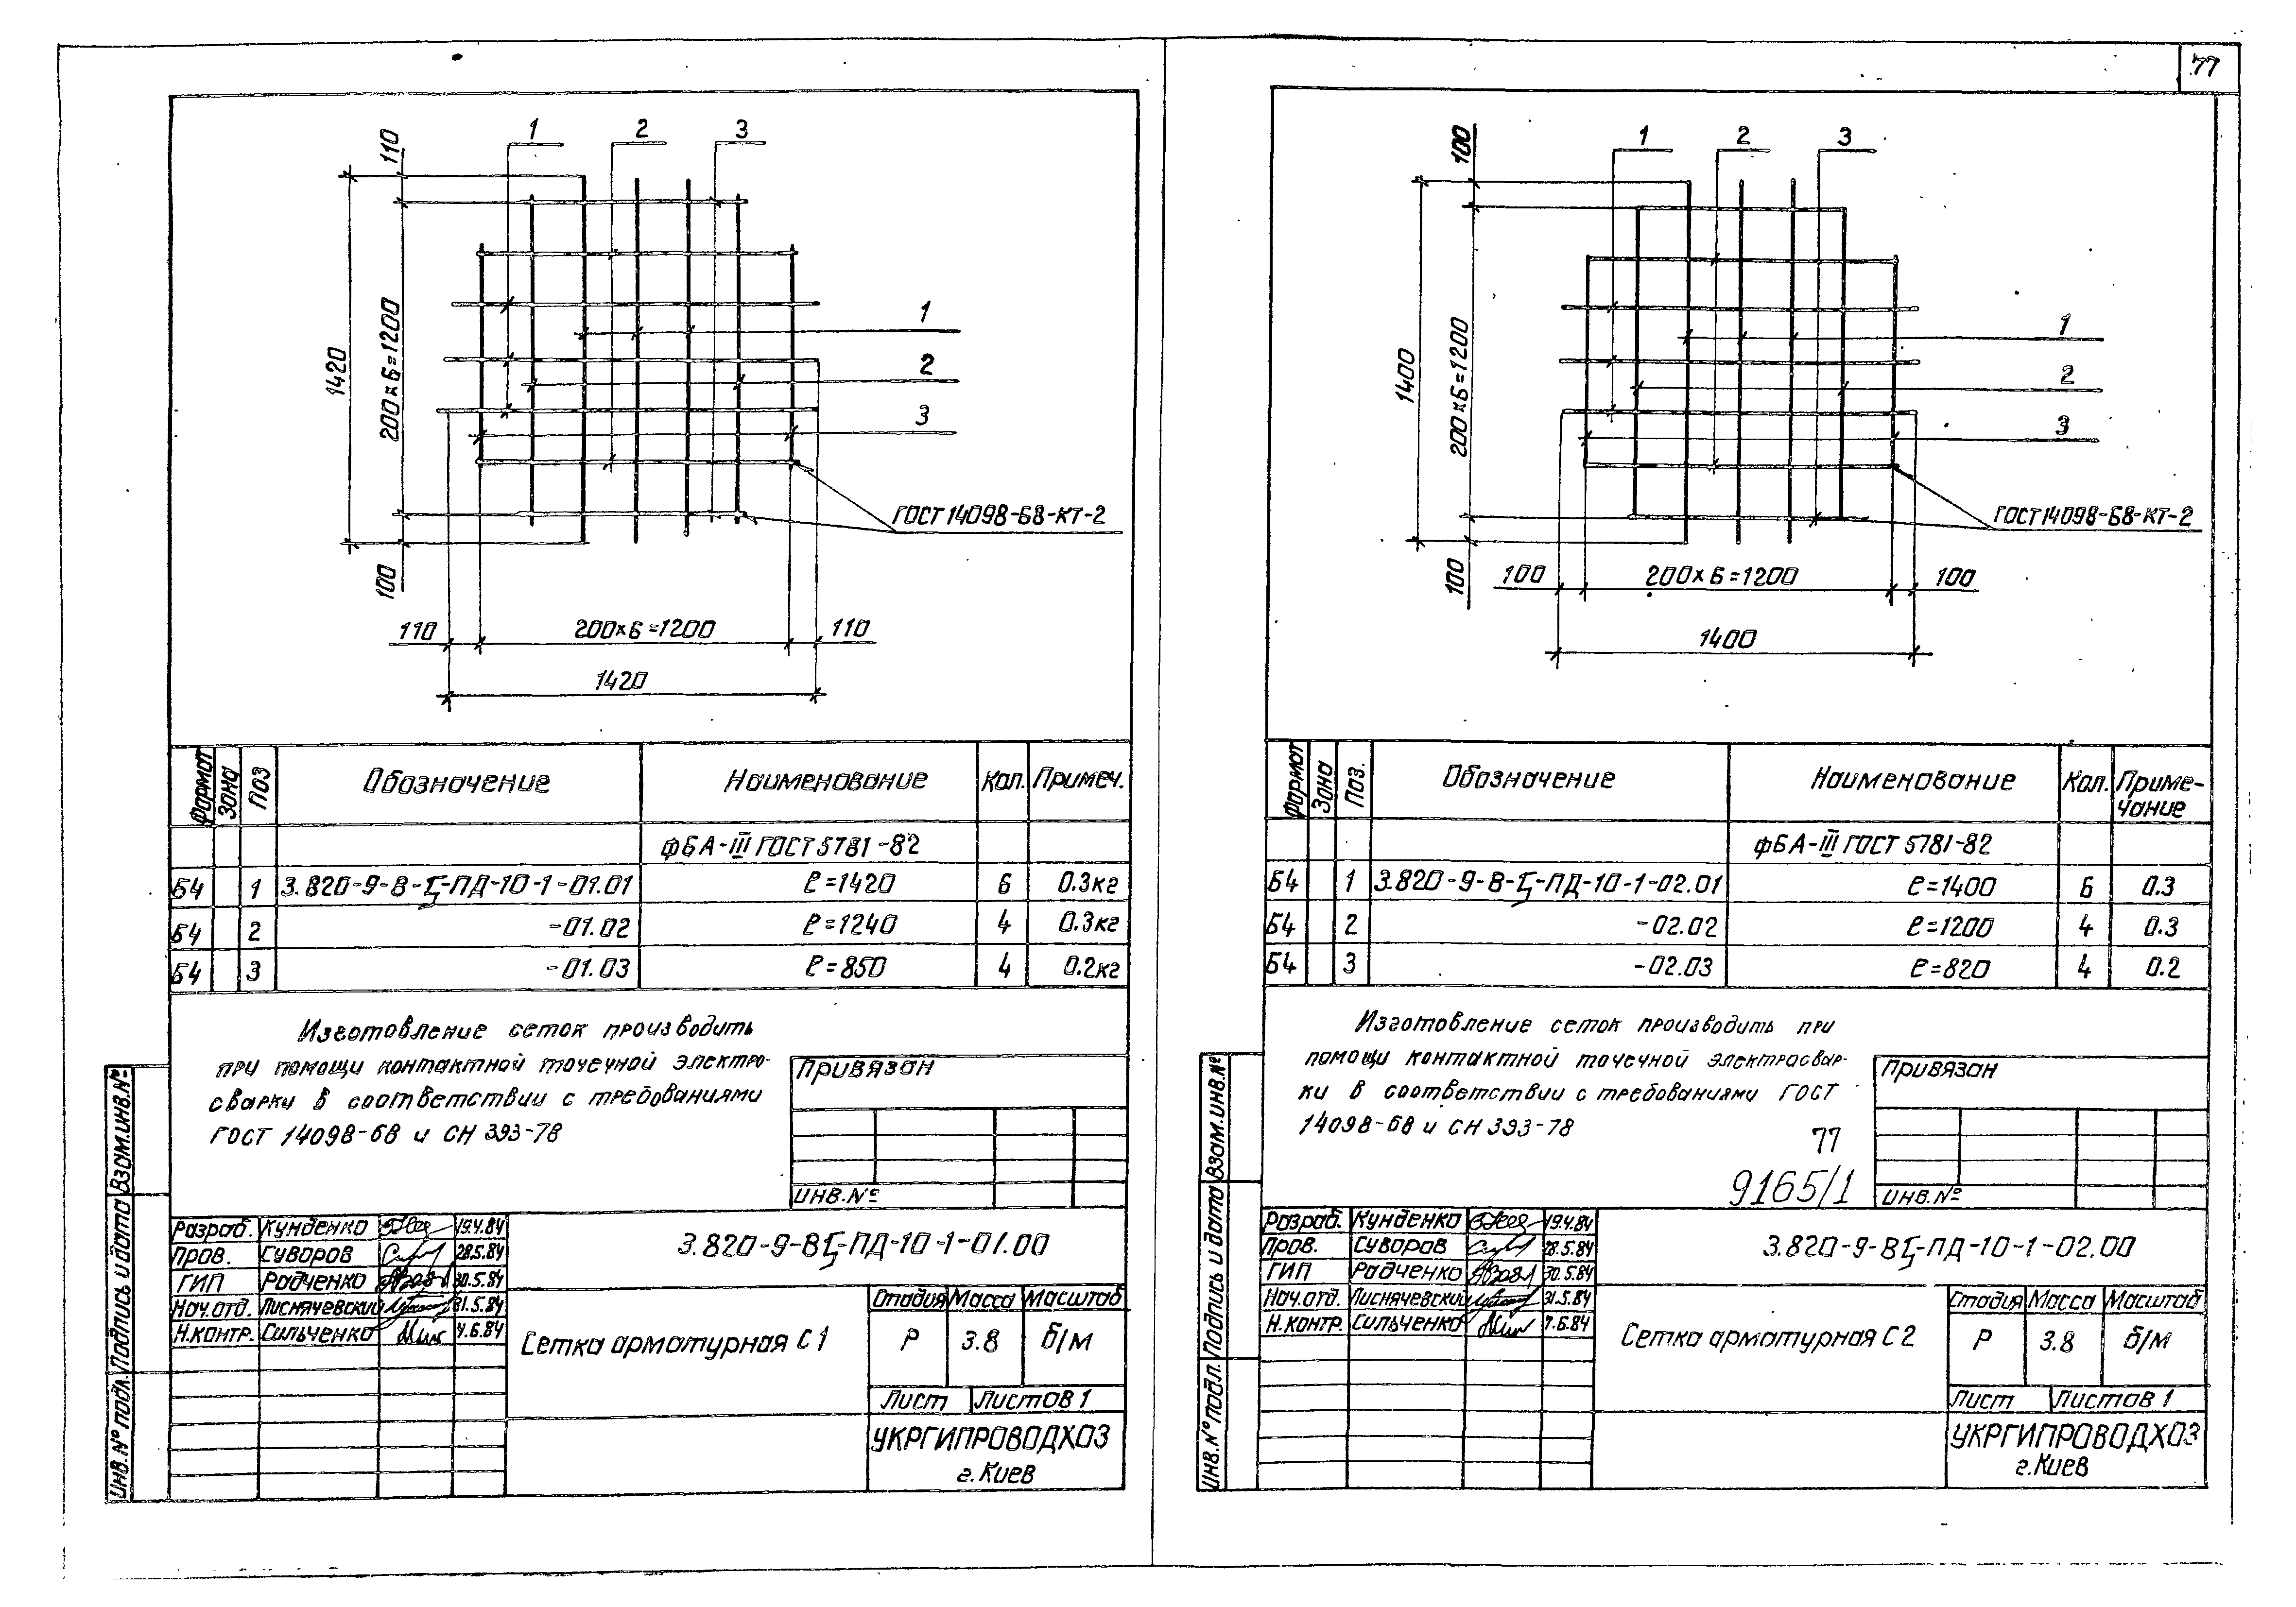 77
110
1
2
3
1420
200х6=1200
1
2
3
ГОСТ 14098-68-КТ-2
100
110
200х6=1200
110
1420
Формат Зона Поз Обозначение Наименование Кол. Примеч.
ф6А-III ГОСТ 5781-82
Б4 1 3.820-9-В-Ц-ПД-10-1-01.01 ℓ=1420 6 0.3кг
Б4 2 -01.02 ℓ=1240 4 0.3кг
Б4 3 -01.03 ℓ=850 4 0.2кг
Изготовление сеток производить
при помощи контактной точечной электро-
сварки в соответствии с требованиями
ГОСТ 14098-68 и СН 393-78
Привязан
Инв.№
Разраб. Кунденко 19.4.84
Пров. Суворов 28.5.84
ГИП Радченко 30.5.84
Нач.отд. Лиснячевский 31.5.84
Н.контр. Сильченко 4.6.84
3.820-9-ВЦ-ПД-10-1-01.00
Сетка арматурная С1
Стадия Масса Масштаб
Р 3.8 б/м
Лист Листов 1
УКРГИПРОВОДХОЗ
г.Киев
Инв.№ подл. Подпись и дата Взам.инв.№
100
1
2
3
1400
200х6=1200
1
2
3
ГОСТ 14098-68-КТ-2
100
100
200х6=1200
100
1400
Формат Зона Поз. Обозначение Наименование Кол. Приме-
чание
ф6А-III ГОСТ 5781-82
Б4 1 3.820-9-В-Ц-ПД-10-1-02.01 ℓ=1400 6 0.3
Б4 2 -02.02 ℓ=1200 4 0.3
Б4 3 -02.03 ℓ=820 4 0.2
Изготовление сеток производить при
помощи контактной точечной электросвар-
ки в соответствии с требованиями ГОСТ
14098-68 и СН 393-78
77
9165/1
Привязан
Инв.№
Разраб. Кунденко 19.4.84
Пров. Суворов 28.5.84
ГИП Радченко 30.5.84
Нач.отд. Лиснячевский 31.5.84
Н.контр. Сильченко 7.6.84
3.820-9-ВЦ-ПД-10-1-02.00
Сетка арматурная С2
Стадия Масса Масштаб
Р 3.8 б/м
Лист Листов 1
УКРГИПРОВОДХОЗ
г.Киев
Инв.№ подл. Подпись и дата Взам.инв.№